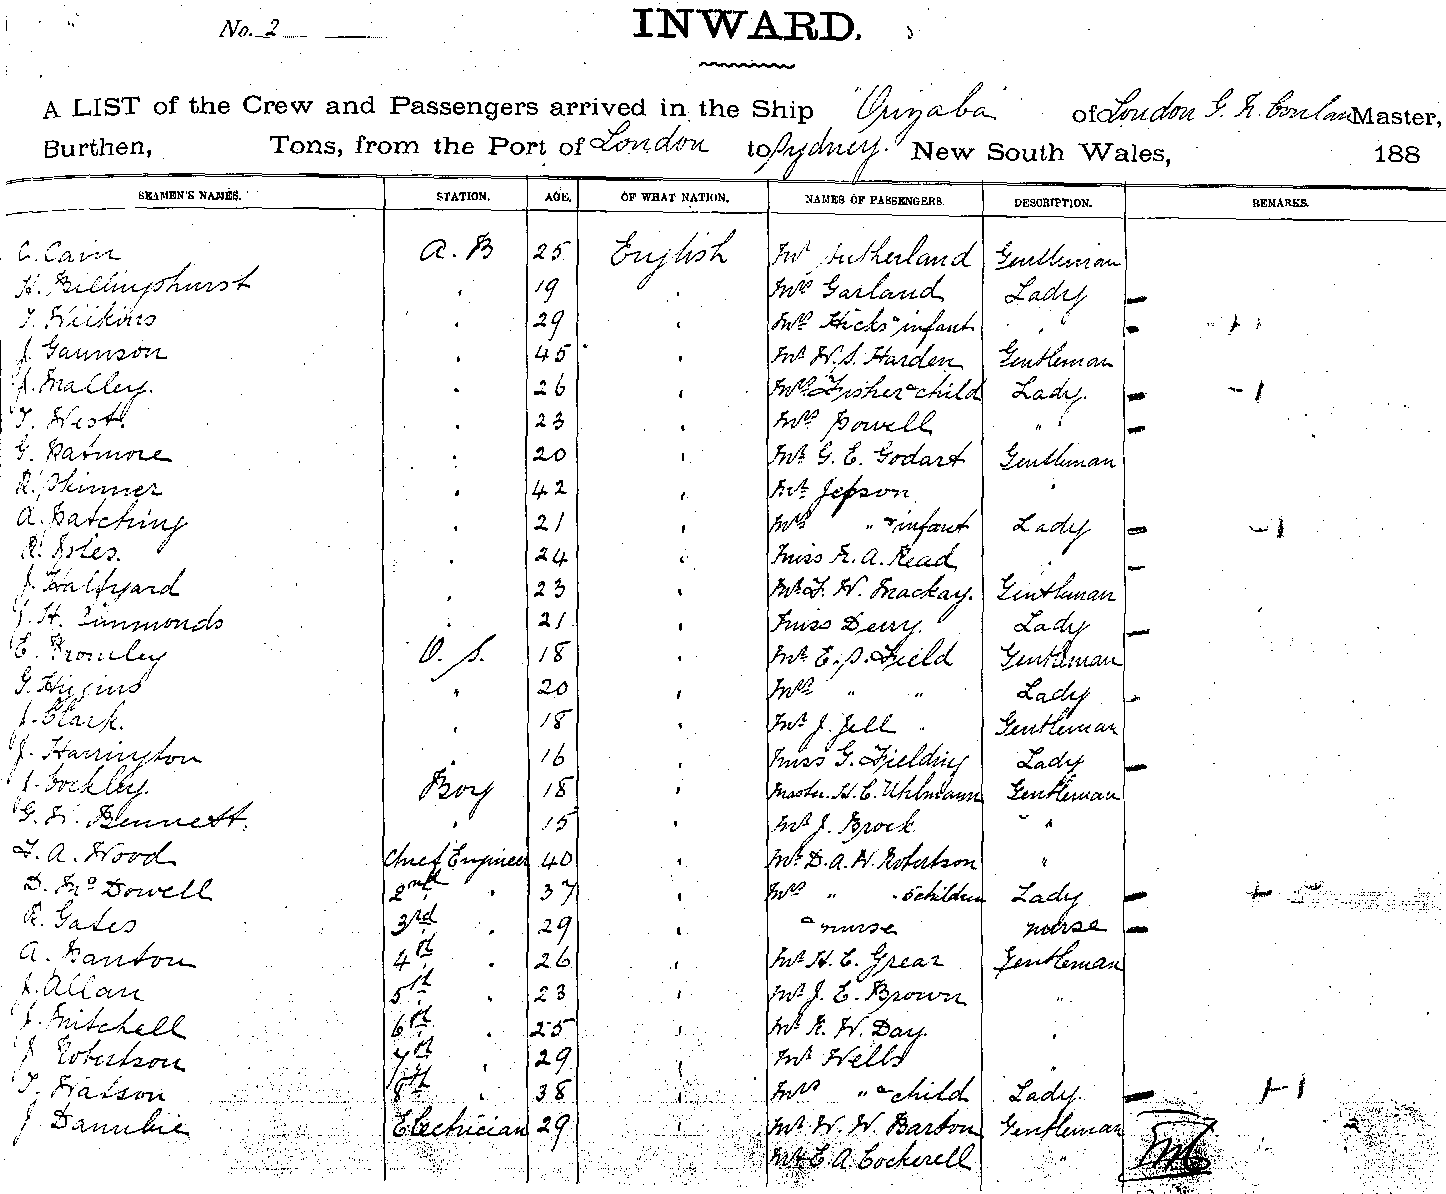 No. 2
INWARD.
A LIST of the Crew and Passengers arrived in the Ship "Orizaba" of London G. N. Conlan Master,
Burthen, Tons, from the Port of London to Sydney. New South Wales, 188
SEAMEN'S NAMES. STATION. AGE. OF WHAT NATION. NAMES OF PASSENGERS. DESCRIPTION. REMARKS.
C. Cain A. B 25 English Mr Sutherland Gentleman
H. Billinghurst " 19 " Mrs Garland Lady
T. Wilkins " 29 " Mrs Hicks & infant "
J. Gaunson " 45 " Mr W. S. Harden Gentleman
J. Malley. " 26 " Mrs Fisher & child Lady.
T. West. " 23 " Mrs Powell "
G. Patmore " 20 " Mr G. E. Godart Gentleman
R. Skinner " 42 " Mr Jepson "
A. Patching " 21 " Mrs " & infant Lady
R. Isles. " 24 " Miss R. A. Read "
J. Halfyard " 23 " Mr F. W. Mackay. Gentleman
J. H. Simmonds " 21 " Miss Derry. Lady
E. Bromley O. S. 18 " Mr E. S. Field Gentleman
G. Higgins " 20 " Mrs " " Lady
J. Clark. " 18 " Mr J. Jell Gentleman
J. Harrington " 16 " Miss G. Fielding Lady
J. Cockley. Boy 18 " Master H. C. Uhlmann Gentleman
G. W. Bennett. " 15 " Mr J. Brock "
F. A. Wood Chief Engineer 40 " Mr D. A. W. Robertson "
D. McDowell 2nd " 37 " Mrs " " 5 children Lady
R. Gates 3rd " 29 " & nurse nurse
A. Banton 4th " 26 " Mr H. C. Grear Gentleman
J. Allan 5th " 23 " Mr J. E. Brown "
J. Mitchell 6th " 25 " Mr R. W. Day. "
J Robertson 7th " 29 " Mr Wells "
T. Watson 8th " 38 " Mrs " & child Lady.
J Danubie Electrician 29 " Mr W. W. Barton Gentleman 2
Mr E. A. Cockerell "